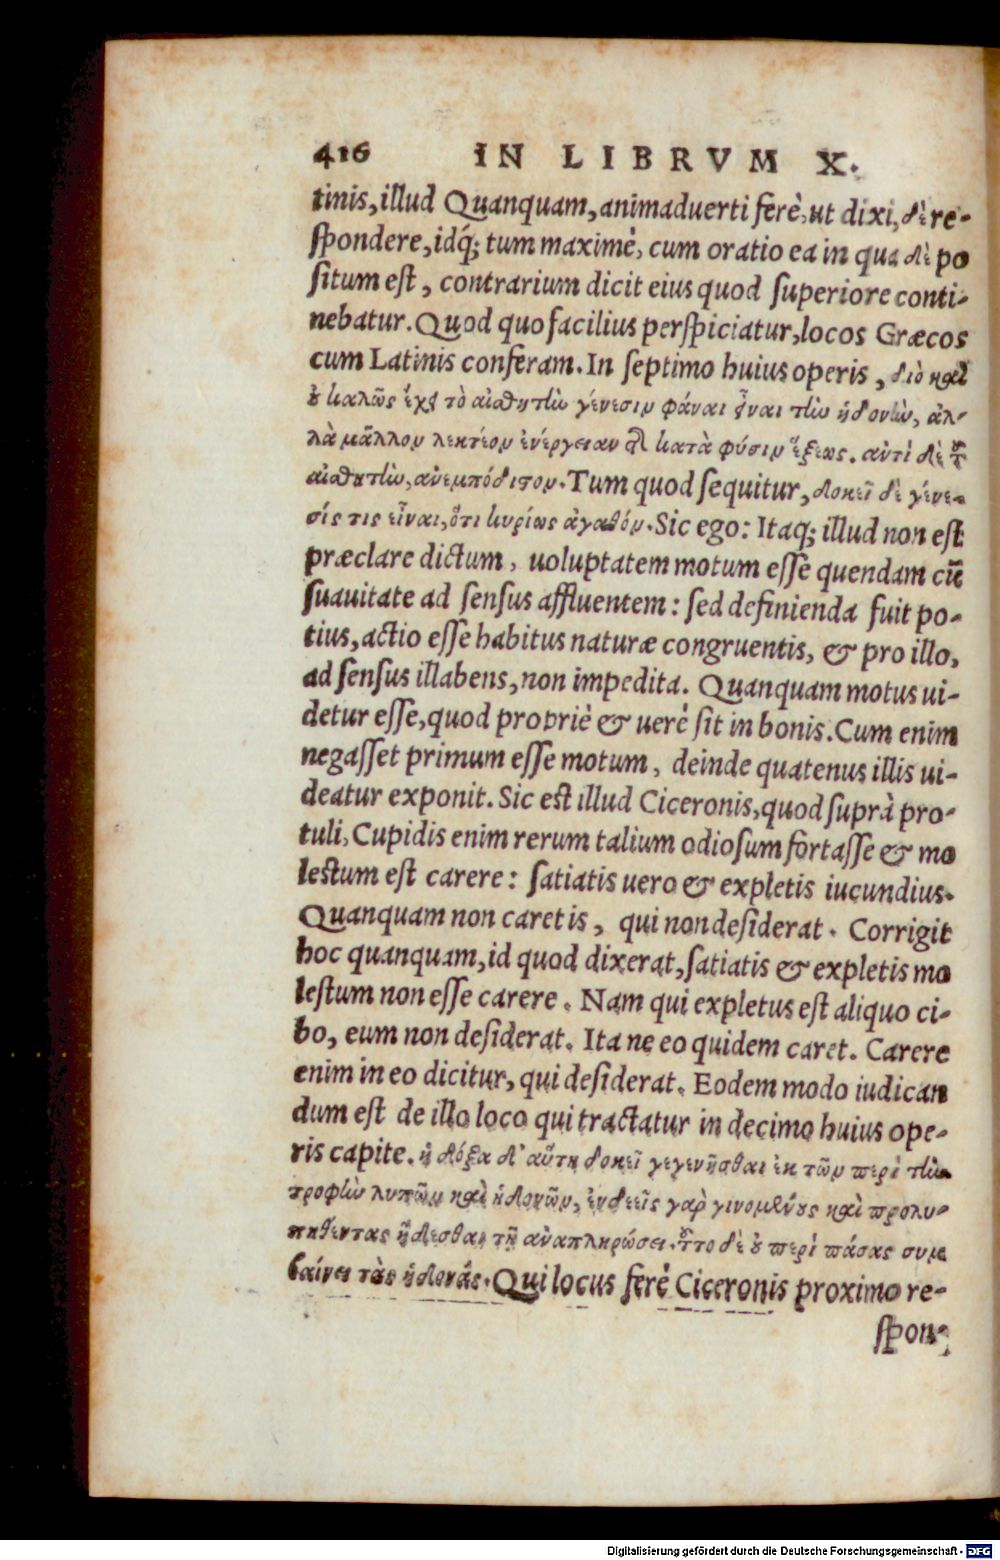 416 IN LIBRVM X.
tinis, illud Quanquam, animaduerti ferè, ut dixi, δὲ re-
spondere, idq́; tum maximè, cum oratio ea in qua δὲ po
situm est, contrarium dicit eius quod superiore conti-
nebatur. Quod quo facilius perspiciatur, locos Græcos
cum Latinis conferam. In septimo huius operis, διὸ καὶ
οὐ καλῶς ἔχει τὸ αἰσθητὴν γένεσιν φάναι εἶναι τὴν ἡδονὴν, ἀλ-
λὰ μᾶλλον λεκτέον ἐνέργειαν τῆς κατὰ φύσιν ἕξεως. ἀντὶ δὲ τοῦ
αἰσθητὴν, ἀνεμπόδιστον. Tum quod sequitur, δοκεῖ δὲ γένε-
σίς τις εἶναι, ὅτι κυρίως ἀγαθόν. Sic ego: Itaq; illud non est
præclare dictum, uoluptatem motum esse quendam cū
suauitate ad sensus affluentem: sed definienda fuit po-
tius, actio esse habitus naturæ congruentis, & pro illo,
ad sensus illabens, non impedita. Quanquam motus ui-
detur esse, quod propriè & uerè sit in bonis. Cum enim
negasset primum esse motum, deinde quatenus illis ui-
deatur exponit. Sic est illud Ciceronis, quod suprà pro-
tuli, Cupidis enim rerum talium odiosum fortasse & mo
lestum est carere: satiatis uero & expletis iucundius.
Quanquam non caret is, qui non desiderat. Corrigit
hoc quanquam, id quod dixerat, satiatis & expletis mo
lestum non esse carere. Nam qui expletus est aliquo ci-
bo, eum non desiderat. Ita ne eo quidem caret. Carere
enim in eo dicitur, qui desiderat. Eodem modo iudican
dum est de illo loco qui tractatur in decimo huius ope-
ris capite. ἡ δόξα δ' αὕτη δοκεῖ γεγενῆσθαι ἐκ τῶν περὶ τὴν
τροφὴν λυπῶν καὶ ἡδονῶν, ἐνδεεῖς γὰρ γινομένους καὶ προλυ-
πηθέντας ἥδεσθαι τῇ ἀναπληρώσει. τοῦτο δὲ οὐ περὶ πάσας συμ
βαίνει τὰς ἡδονάς. Qui locus ferè Ciceronis proximo re-
spon-
Digitalisierung gefördert durch die Deutsche Forschungsgemeinschaft - DFG